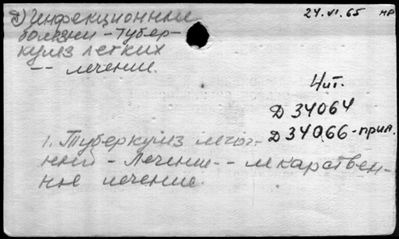 2) Инфекционные
болезни - Тубер-
кулёз легких
-- лечение.
24.VI.65 нр
Чит.
Д 34064
Д 34066 - прил.
1. Туберкулёз легоч-
ный - Лечение - лекарствен-
ное лечение.